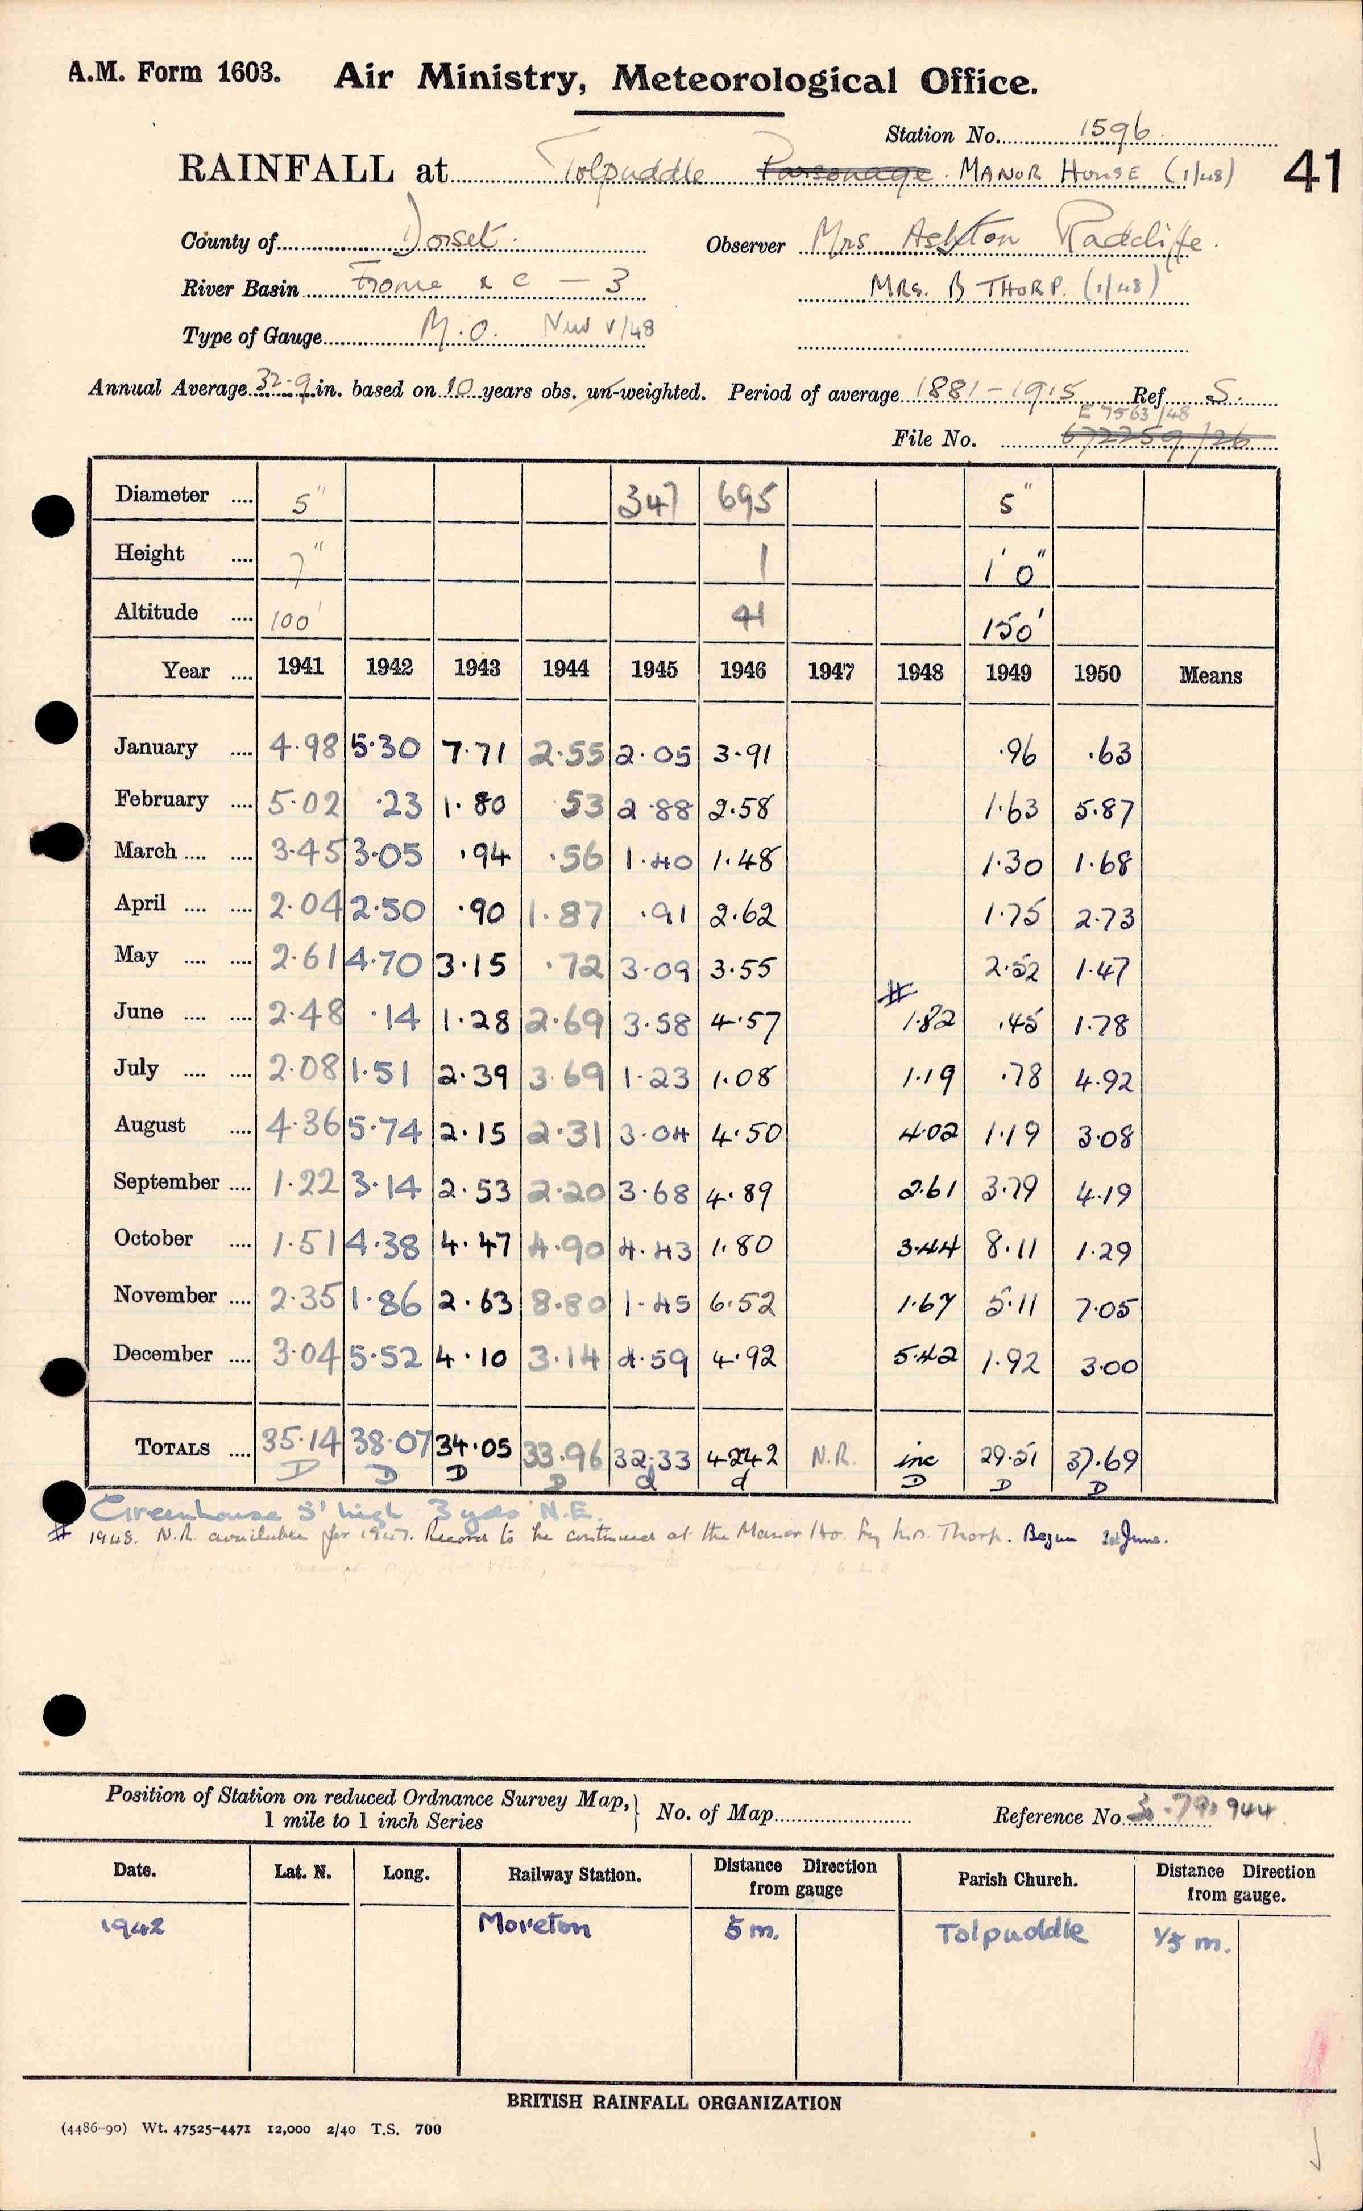 A.M. Form 1603. Air Ministry, Meteorological Office.
Station No. 1596
RAINFALL at Tolpuddle Parsonage. MANOR HOUSE (1/48) 41
County of Dorset. Observer Mrs Ashton Radcliffe.
River Basin Frome & c – 3 MRS. B THORP. (1/48)
Type of Gauge M.O. New V/48
Annual Average 32.9 in. based on 10 years obs. un-weighted. Period of average 1881–1915 Ref. S.
E 7563/48
File No. 672259/26
Diameter .... 5" 347 695 5"
Height .... 7" 1 1'0"
Altitude .... 100' 41 150'
Year .... 1941 1942 1943 1944 1945 1946 1947 1948 1949 1950 Means
January .... 4.98 5.30 7.71 2.55 2.05 3.91 .96 .63
February .... 5.02 .23 1.80 .53 2.88 2.58 1.63 5.87
March .... .... 3.45 3.05 .94 .56 1.40 1.48 1.30 1.68
April .... .... 2.04 2.50 .90 1.87 .91 2.62 1.75 2.73
May .... .... 2.61 4.70 3.15 .72 3.09 3.55 2.52 1.47
June .... .... 2.48 .14 1.28 2.69 3.58 4.57 # 1.82 .45 1.78
July .... .... 2.08 1.51 2.39 3.69 1.23 1.08 1.19 .78 4.92
August .... 4.36 5.74 2.15 2.31 3.04 4.50 4.02 1.19 3.08
September .... 1.22 3.14 2.53 2.20 3.68 4.89 2.61 3.79 4.19
October .... 1.51 4.38 4.47 4.90 4.43 1.80 3.44 8.11 1.29
November .... 2.35 1.86 2.63 8.80 1.45 6.52 1.67 5.11 7.05
December .... 3.04 5.52 4.10 3.14 4.59 4.92 5.42 1.92 3.00
TOTALS .... 35.14 38.07 34.05 33.96 32.33 42.42 N.R. inc 29.51 37.69
D D D D d d D D D
Greenhouse 8' high 3 yds N.E.
# 1948. N.R. available for 1947. Record to be continued at the Manor Ho. by Mrs. Thorp. Begun 1st June.
Position of Station on reduced Ordnance Survey Map,
1 mile to 1 inch Series } No. of Map Reference No. 3.79.944
Date. Lat. N. Long. Railway Station. Distance Direction from gauge Parish Church. Distance Direction from gauge.
1942 Moreton 5 m. Tolpuddle 1/5 m.
BRITISH RAINFALL ORGANIZATION
(4486-90) Wt. 47525-4471 12,000 2/40 T.S. 700